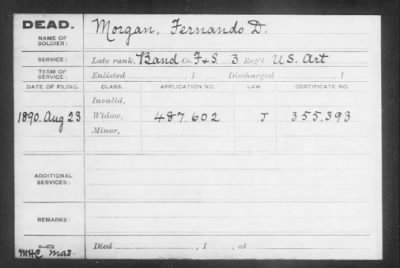 DEAD. Morgan, Fernando D.
NAME OF
SOLDIER:
SERVICE: Late rank, Band Co. F&S. 3 Reg't U.S. Art
TERM OF
SERVICE: Enlisted , 1 Discharged , 1
DATE OF FILING. CLASS. APPLICATION NO. LAW. CERTIFICATE NO.
Invalid,
1890. Aug 23 Widow, 487.602 J 355.393
Minor,
ADDITIONAL
SERVICES:
REMARKS:
Died , 1 , at